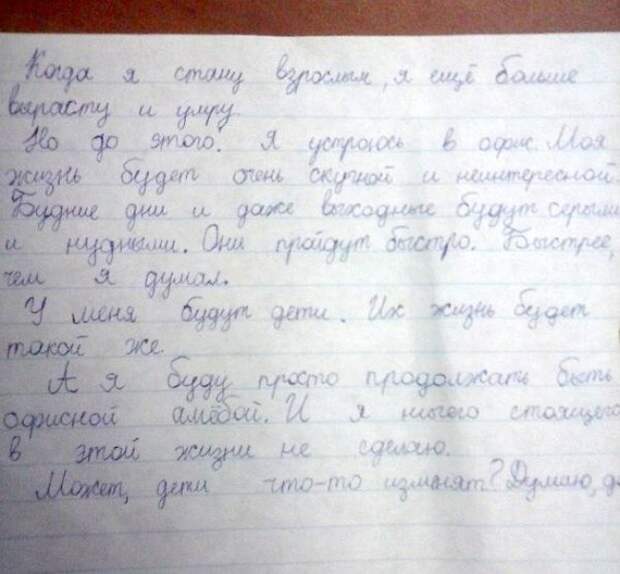 Когда я стану взрослым, я ещё больше
вырасту и умру.
Но до этого. Я устроюсь в офис. Моя
жизнь будет очень скучной и неинтересной.
Будние дни и даже выходные будут серыми
и нудными. Они пройдут быстро. Быстрее,
чем я думал.
У меня будут дети. Их жизнь будет
такой же.
А я буду просто продолжать быть
офисной амёбой. И я ничего стоящего
в этой жизни не сделаю.
Может, дети что-то изменят? Думаю, да